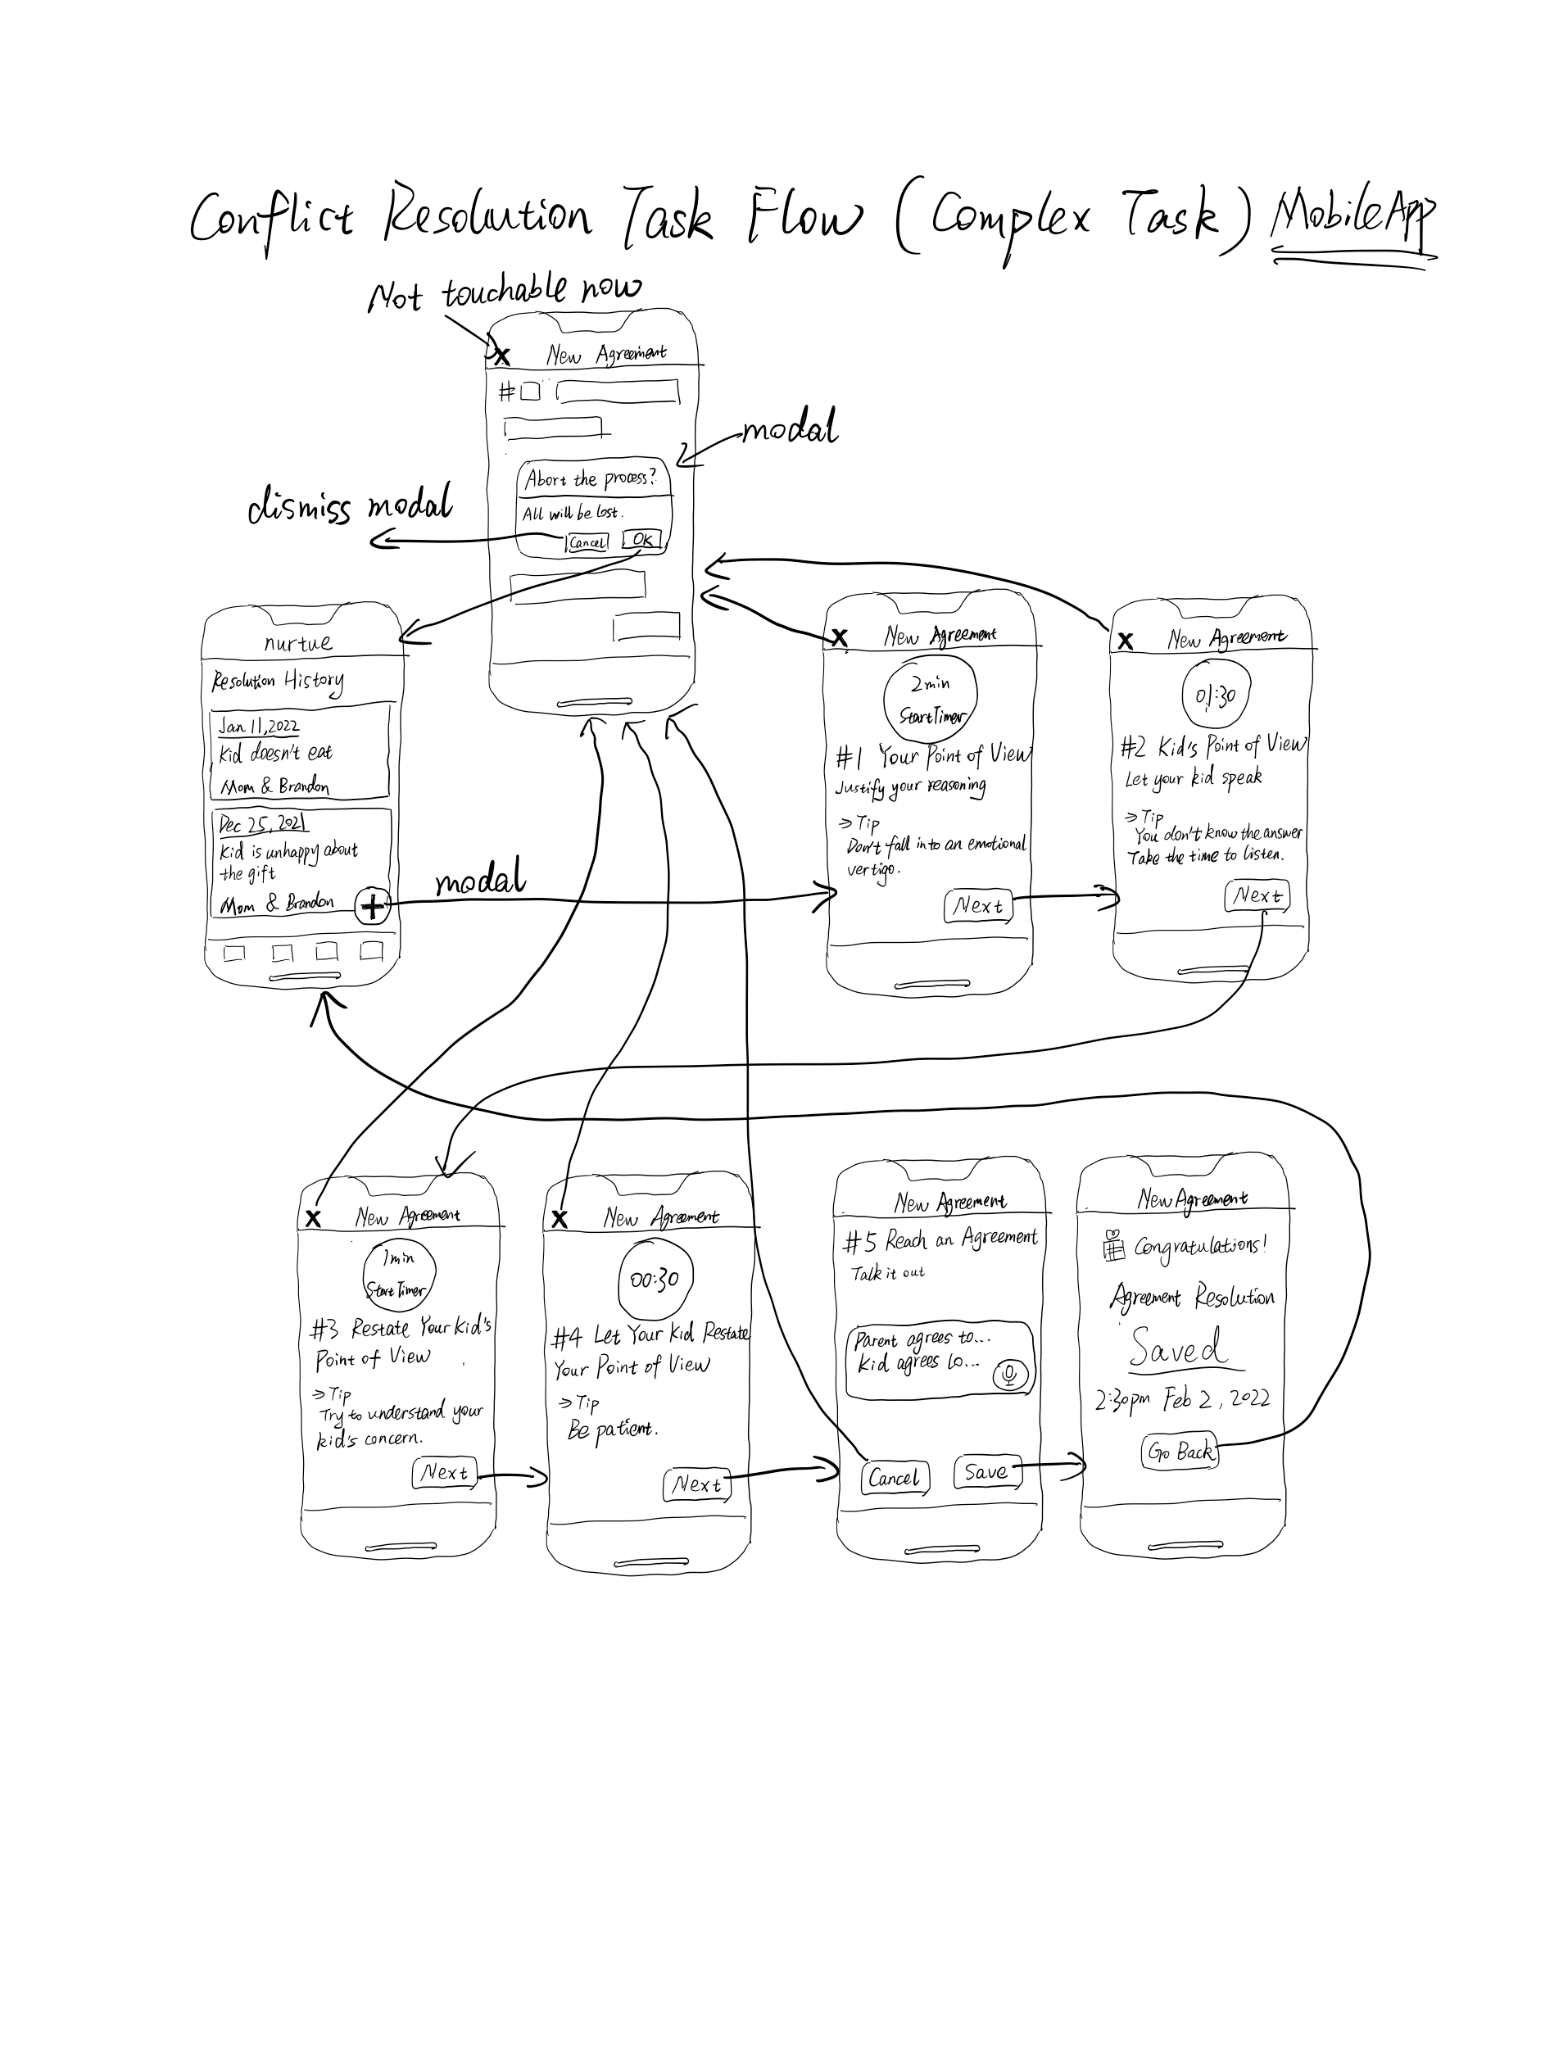 Conflict Resolution Task Flow (Complex Task) MobileApp
Not touchable now
X New Agreement
#
modal
Abort the process?
All will be lost.
Cancel OK
dismiss modal
nurtue
Resolution History
Jan 11, 2022
Kid doesn't eat
Mom & Brandon
Dec 25, 2021
Kid is unhappy about
the gift
Mom & Brandon
+
modal
X New Agreement
2min
Start Timer
#1 Your Point of View
Justify your reasoning
→ Tip
Don't fall into an emotional
vertigo.
Next
X New Agreement
01:30
#2 Kid's Point of View
Let your kid speak
→ Tip
You don't know the answer
Take the time to listen.
Next
X New Agreement
1min
Start Timer
#3 Restate Your Kid's
Point of View
→ Tip
Try to understand your
kid's concern.
Next
X New Agreement
00:30
#4 Let Your Kid Restate
Your Point of View
→ Tip
Be patient.
Next
New Agreement
#5 Reach an Agreement
Talk it out
Parent agrees to...
Kid agrees to...
Cancel Save
New Agreement
Congratulations!
Agreement Resolution
Saved
2:30pm Feb 2, 2022
Go Back